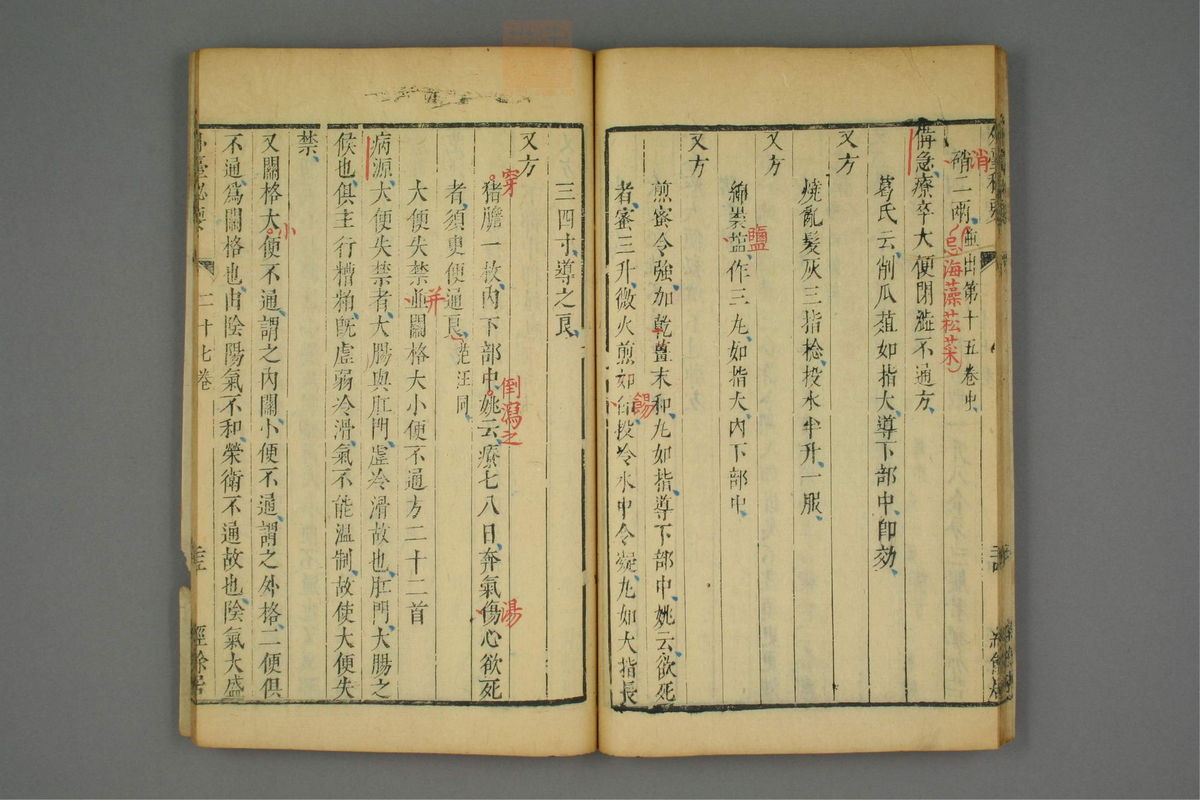 硝二兩並出第十五卷中
消
忌海藻菘菜
備急療卒大便閉澁不通方
葛氏云削瓜菹如指大導下部中即効
又方
燒亂髮灰三指捻投水半升一服
又方
綿裹塩作三丸如指大內下部中
鹽
又方
煎蜜令強加乾薑末和丸如指導下部中姚云欲死
者蜜三升微火煎如投冷水中令凝丸如大指長
餳
三四寸導之良
又方
穿
倒瀉之
湯
猪膽一枚內下部中姚云療七八日奔氣傷心欲死
者須臾便通良范汪同
大便失禁並關格大小便不通方二十二首
并
病源大便失禁者大腸與肛門虛冷滑故也肛門大腸之
候也俱主行糟粕旣虛弱冷滑氣不能溫制故使大便失
禁
又關格大便不通謂之內關小便不通謂之外格二便俱
小
不通爲關格也由陰陽氣不和榮衛不通故也陰氣大盛
外臺秘要 二十七卷 經餘居